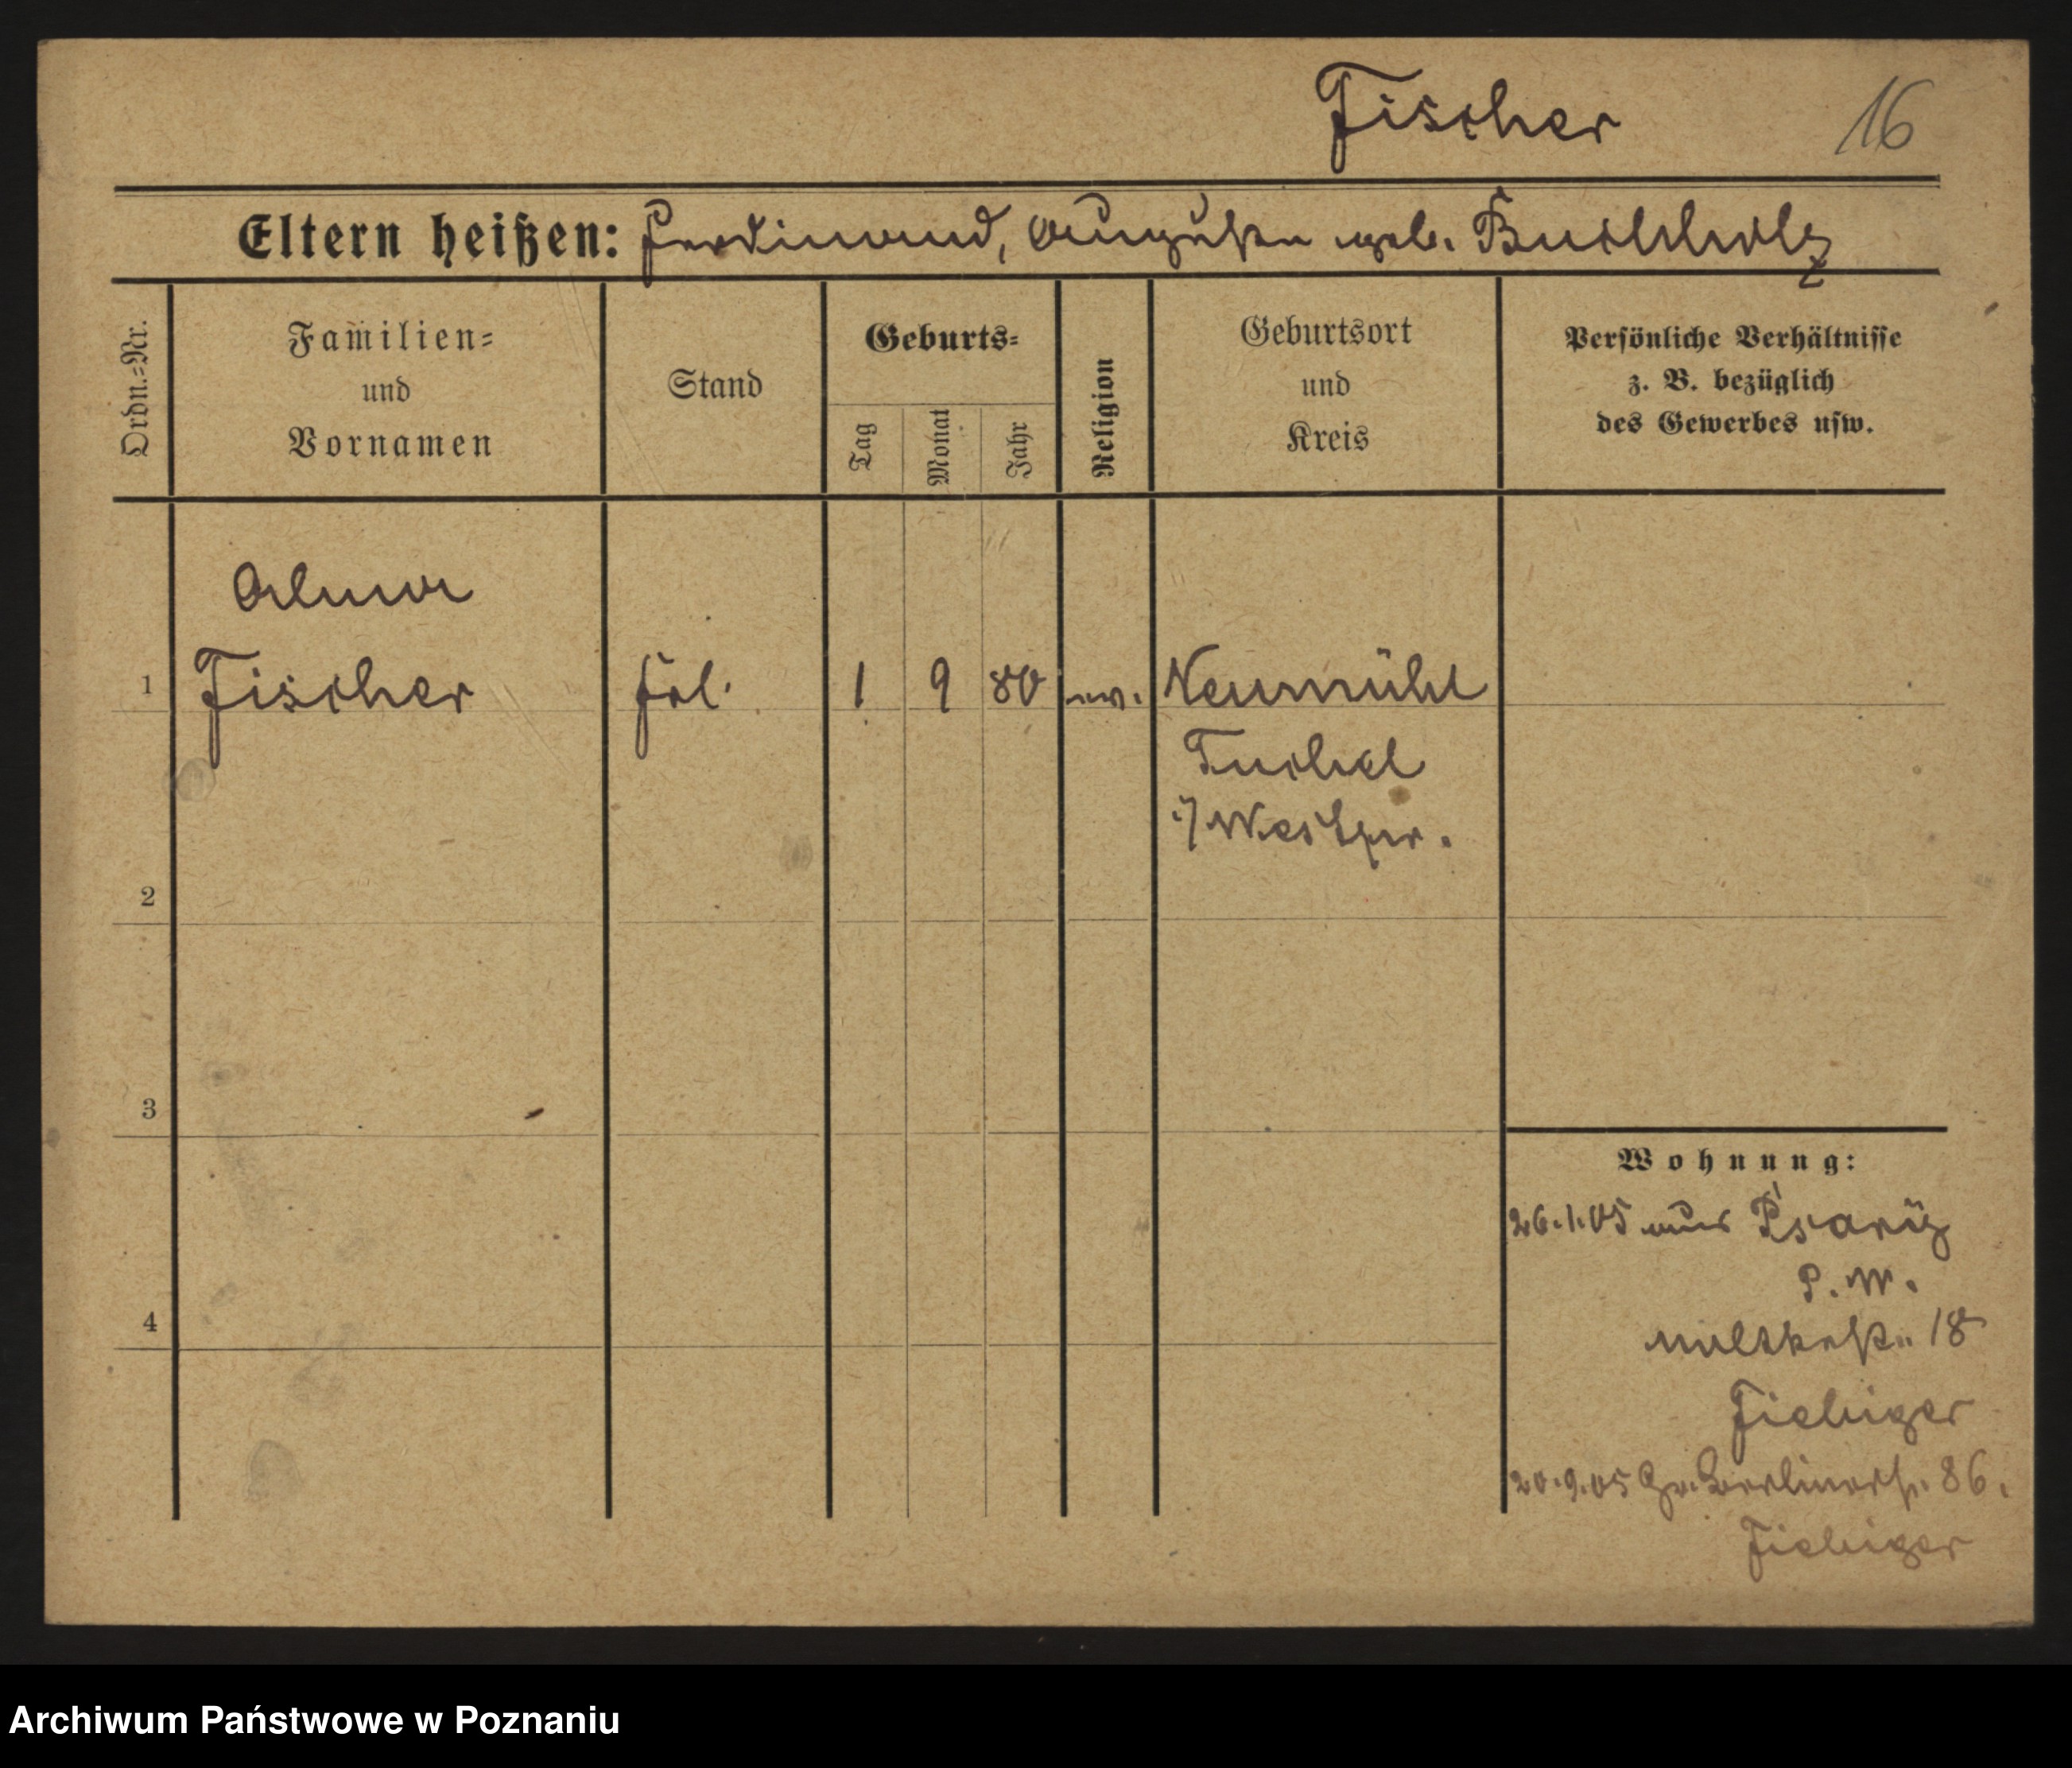 Fischer 16
Eltern heißen: Ferdinand, Auguste geb. Buchholz
Ordn.-Nr.
Familien-
und
Vornamen
Stand
Geburts-
Tag
Monat
Jahr
Religion
Geburtsort
und
Kreis
Persönliche Verhältnisse
z. B. bezüglich
des Gewerbes usw.
Alma
1 Fischer Frl. 1 9 80 ev. Neumühl
Tuchel
i/Westpr.
2
3
4
Wohnung:
26.1.05 aus
P. W.
Moltkestr. 18
Fiebiger
20.9.05 Gr. Berlinerstr. 86.
Fiebiger
Archiwum Państwowe w Poznaniu